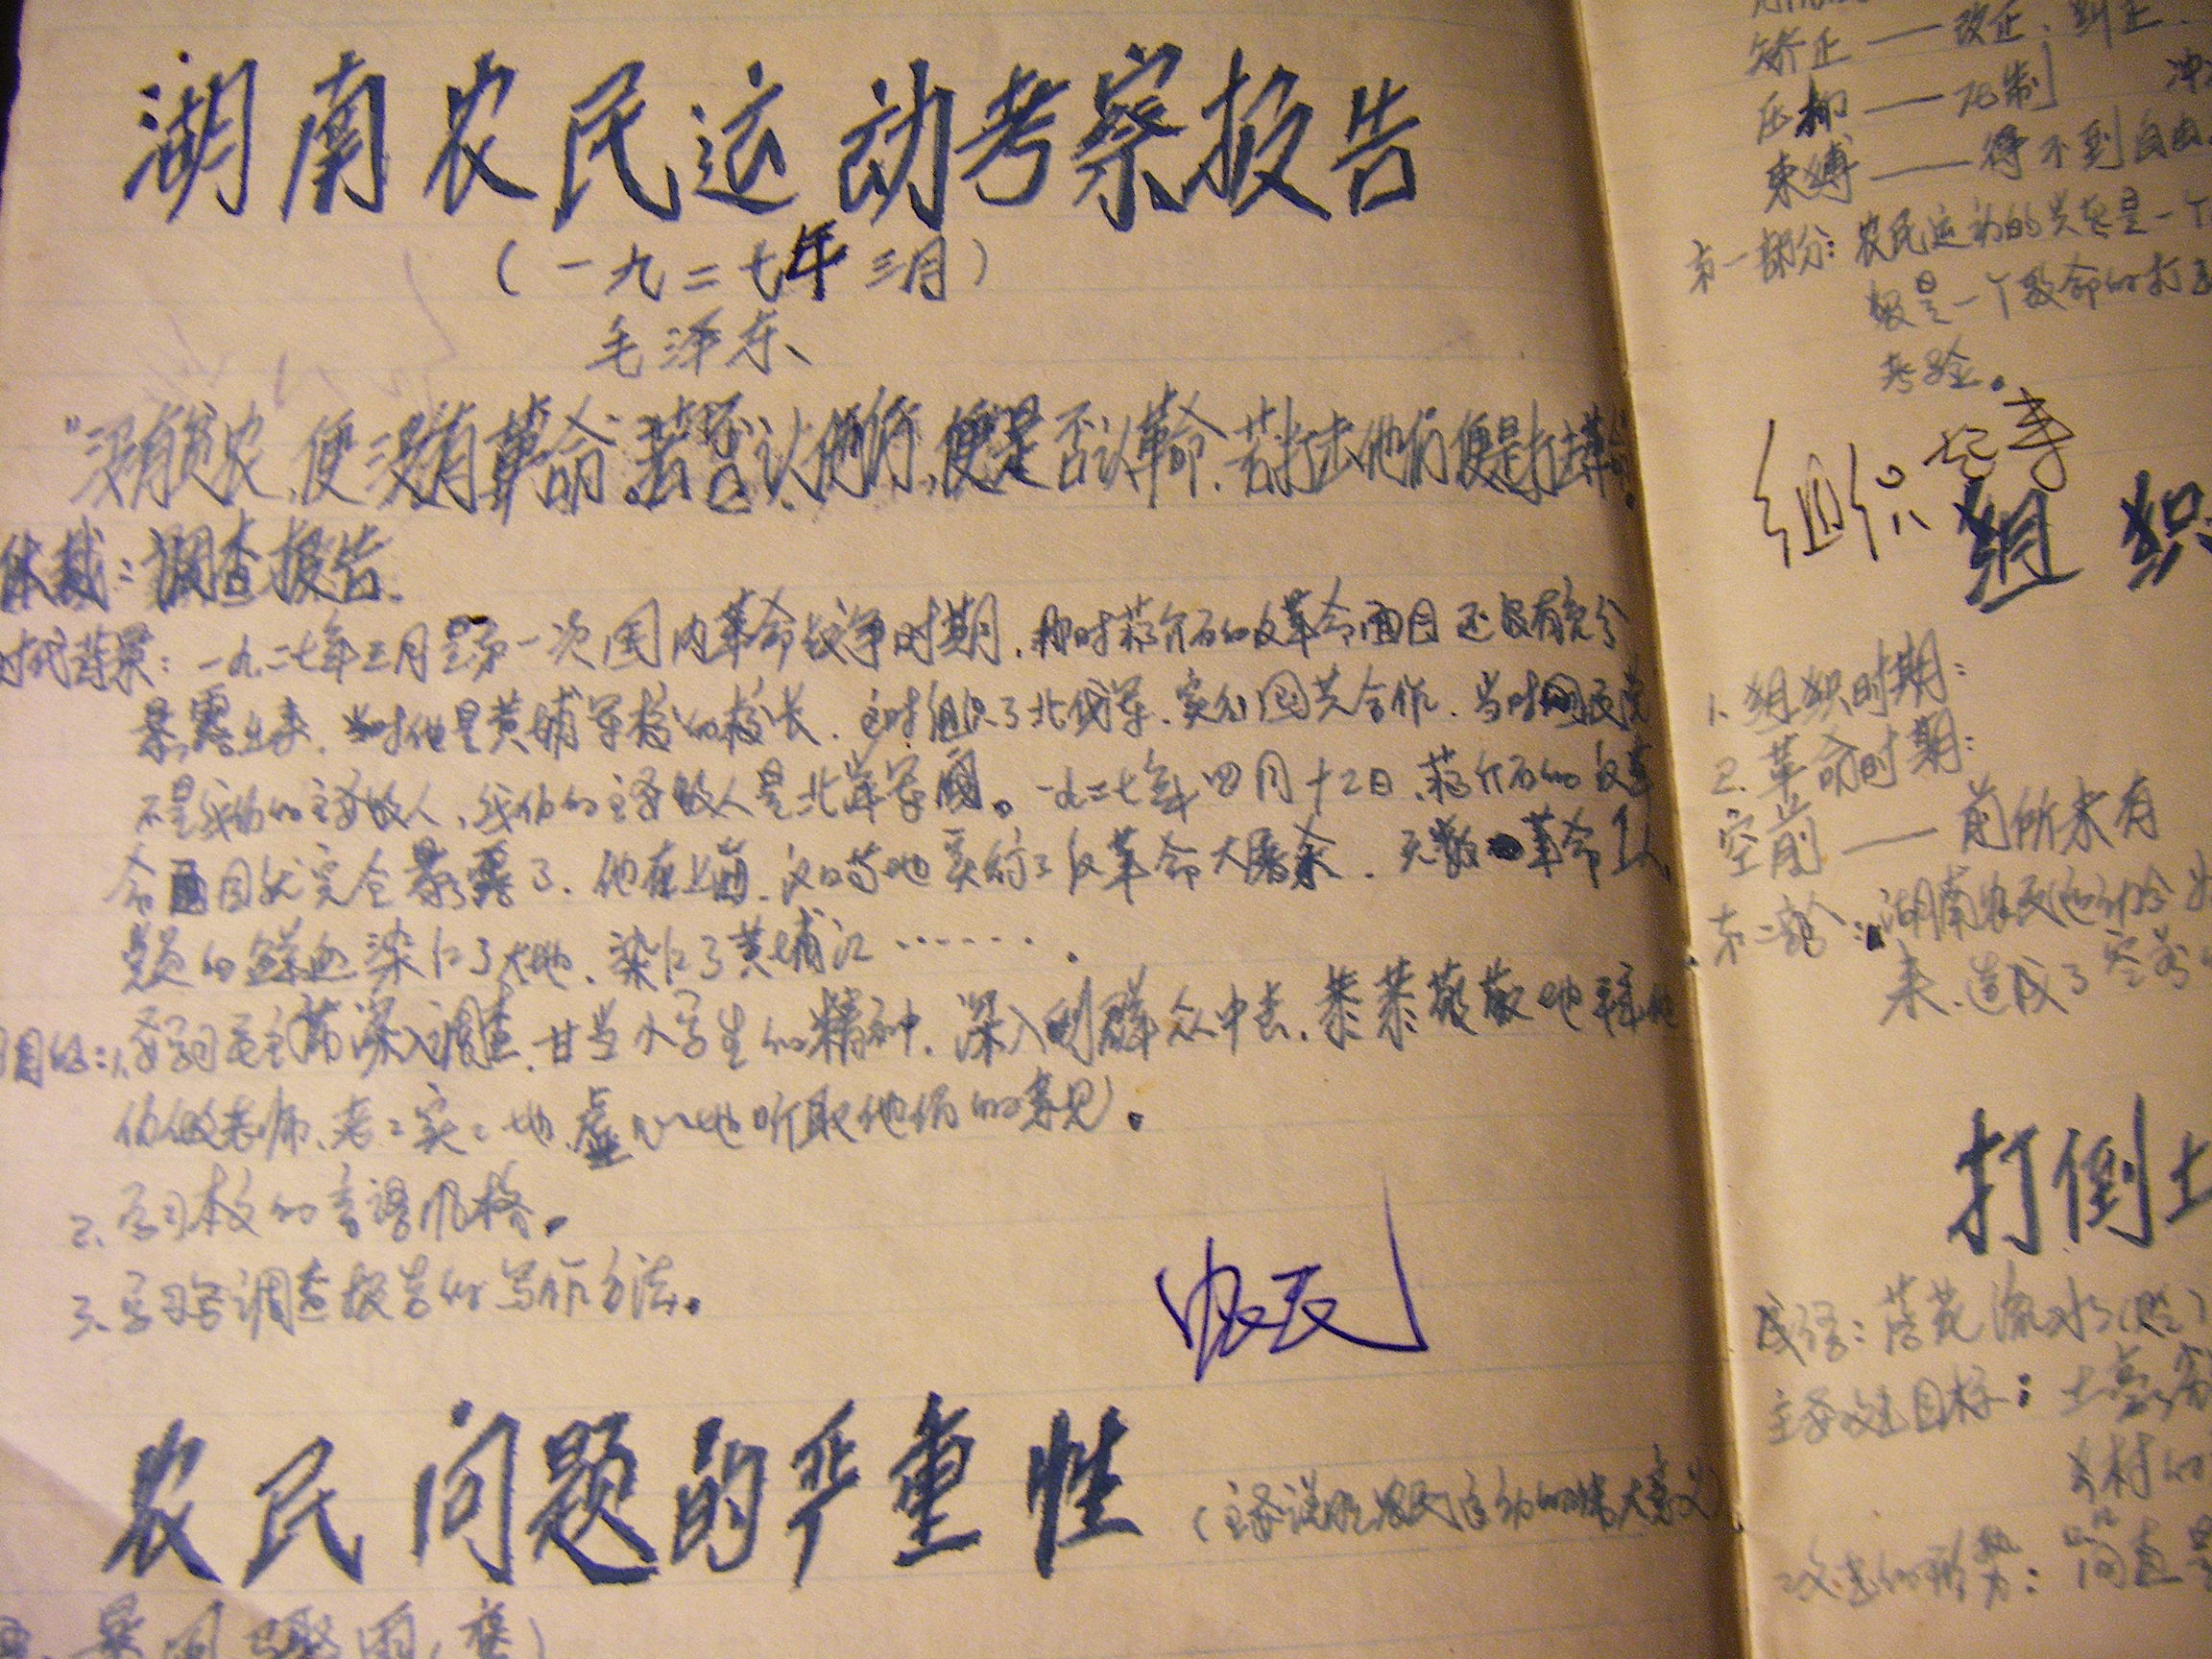 湖南农民运动考察报告
(一九二七年三月)
毛泽东
"没有贫农,便没有革命。若否认他们,便是否认革命.若打击他们便是打击革命。
体裁:调查报告.
时代背景:一九二七年三月是第一次国内革命战争时期.那时蒋介石的反革命面目还没有充分
暴露出来.当时他是黄埔军校的校长.这时组织了北伐军.实行国共合作.当时国民党
不是我们的主要敌人,我们的主要敌人是北洋军阀。一九二七年四月十二日.蒋介石的反革
命面目就完全暴露了.他在上海.实行了反革命大屠杀.无数革命
的鲜血染红了大地.染红了黄埔江…….
目的:1.要学习毛主席深入调查.甘当小学生的精神.深入到群众中去.恭恭敬敬地拜他
们做老师.老〻实〻地.虚心地听取他们的意见。
2.学习本文的言语风格。
3.学习写调查报告的写作方法。
农民
农民问题的严重性(主要说明农民运动的伟大意义
暴风骤雨
矫正——改正、纠正.
压抑——压制
束缚——得不到自由
第一部分:农民运动的兴起是一个
级是一个致命的打击
考验。
组织起来
组织
1.组织时期:
2.革命时期:
空前——前所未有
第二部分:湖南农民运动
来.造成了空前
打倒土
成语:落花流水(贬)
主要攻击目标:土豪
乡村的
攻击的形势:简直是